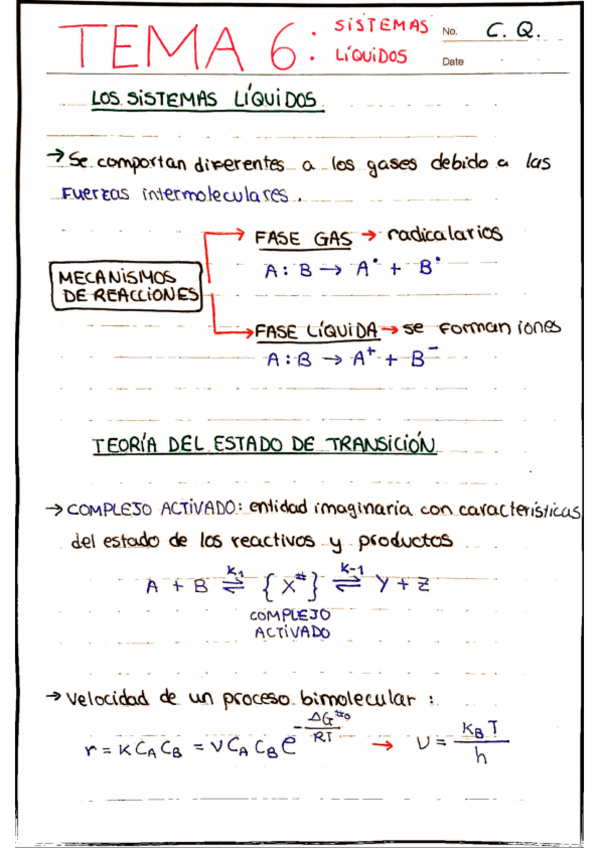 TEMA 6: SISTEMAS LÍQUIDOS
No. C. Q.
Date
LOS SISTEMAS LÍQUIDOS
→ Se comportan diferentes a los gases debido a las
Fuerzas intermoleculares.
MECANISMOS
DE REACCIONES
FASE GAS → radicalarios
A : B → A• + B•
FASE LÍQUIDA → se forman iones
A : B → A⁺ + B⁻
TEORÍA DEL ESTADO DE TRANSICIÓN
→ COMPLEJO ACTIVADO: entidad imaginaria con características
del estado de los reactivos y productos
A + B ⇌ (K₁) {X^#} ⇌ (K-1) Y + Z
COMPLEJO
ACTIVADO
→ Velocidad de un proceso bimolecular :
r = K C_A C_B = ν C_A C_B e^(-ΔG^#o/RT) → ν = K_B T / h